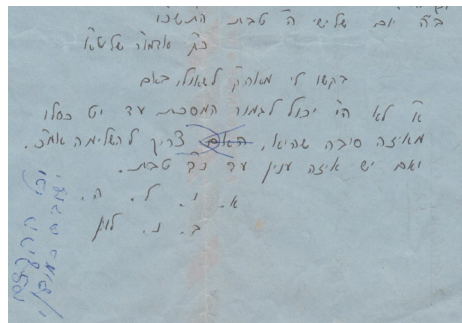 ב"ה יום שלישי ה' טבת ה'תשכ"ו
כ"ק אדמו"ר שליט"א
בקשו לי מאה"ק לשאול, באם
א' לא הי' יכול לגמור המסכת עד יט כסלו
מאיזה סיבה שהיא, האם צריך להשלימה אח"כ.
ואם יש איזה ענין עד כ"ד טבת.
א. ו. ל. ה.
ב. נ. לוין